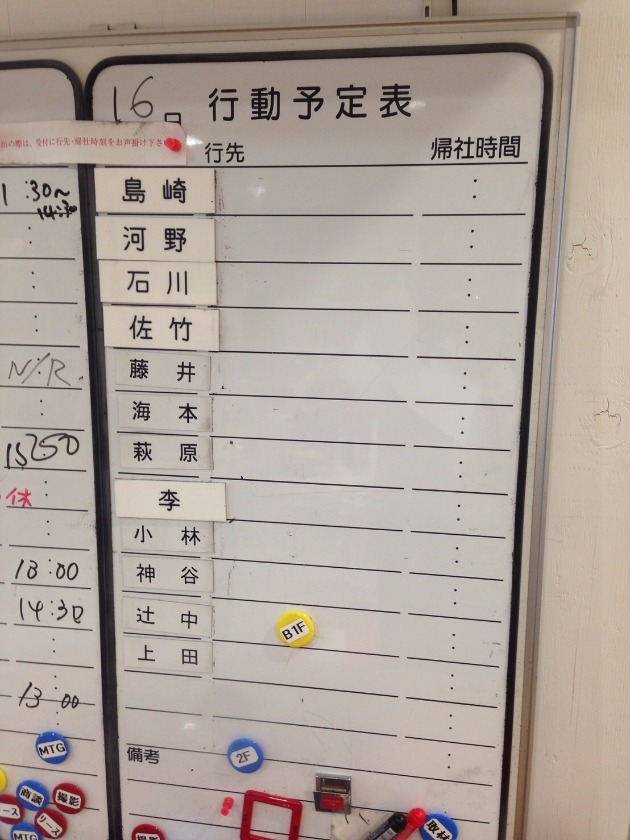 16日 行動予定表
出の際は、受付に行先・帰社時刻をお声掛け下さ
行先 帰社時間
島崎 :
河野 :
石川 :
佐竹 :
藤井 :
海本 :
萩原 :
李 :
小林 :
神谷 :
辻中 B1F :
上田 :
:
:
備考 2F :
:30~
N/R
休
13:00
14:30
13:00
MTG
商談
撮影
ース
リース
MTG
撮影
取材